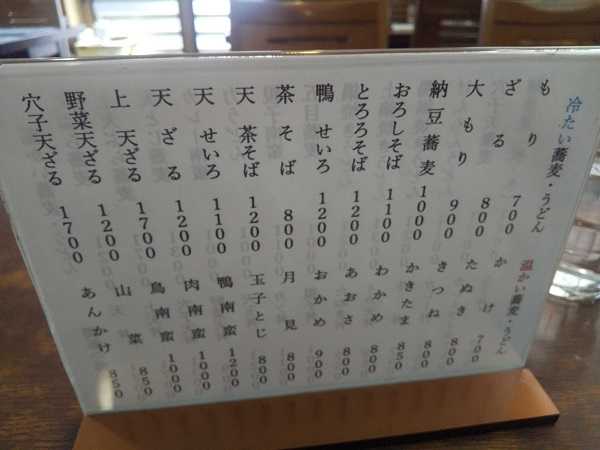 冷たい蕎麦・うどん
もり 700
ざる 800
大もり 900
納豆蕎麦 1000
おろしそば 1100
とろろそば 1200
鴨せいろ 1200
茶そば 800
天茶そば 1200
天せいろ 1100
天ざる 1200
上天ざる 1700
野菜天ざる 1200
穴子天ざる 1700
温かい蕎麦・うどん
かけ 700
たぬき 800
きつね 800
かきたま 850
わかめ 800
あおさ 800
おかめ 900
月見 800
玉子とじ 800
鴨南蛮 1200
肉南蛮 1000
鳥南蛮 1000
山菜 850
あんかけ 850